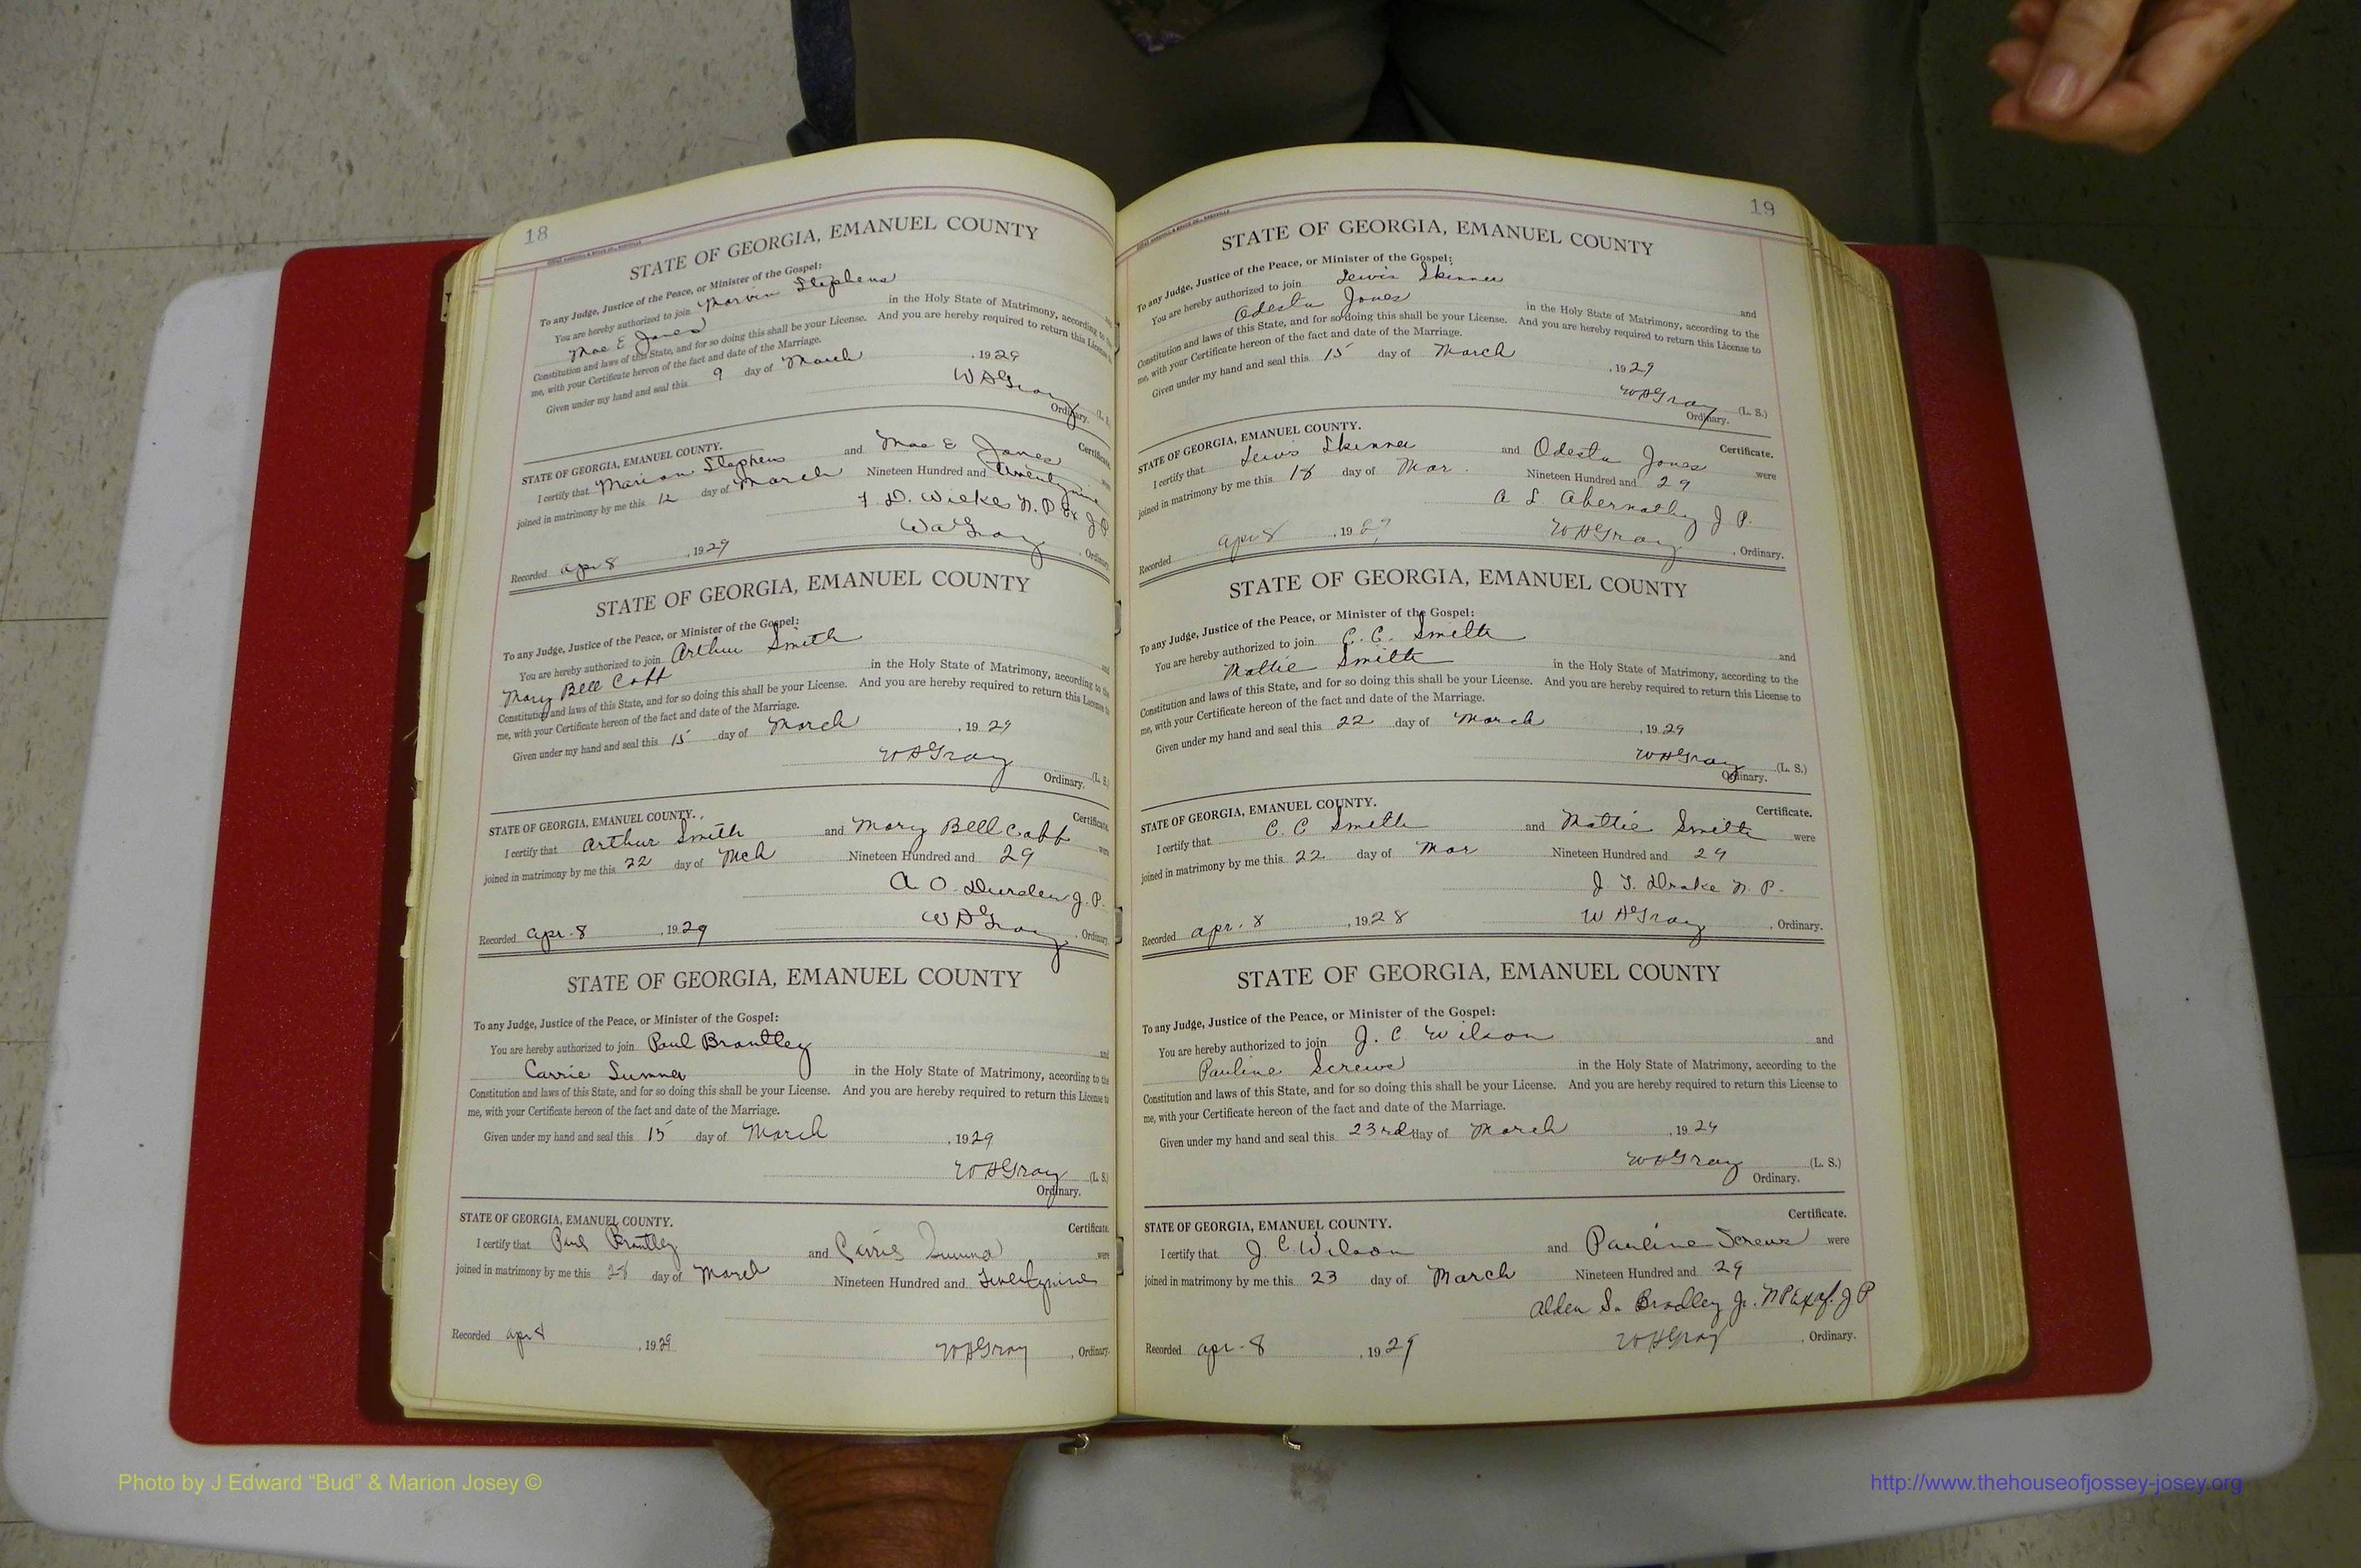 18
STATE OF GEORGIA, EMANUEL COUNTY
To any Judge, Justice of the Peace, or Minister of the Gospel:
You are hereby authorized to join Marvin Stephens and
Mae E Jones in the Holy State of Matrimony, according to the
Constitution and laws of this State, and for so doing this shall be your License. And you are hereby required to return this License to
me, with your Certificate hereon of the fact and date of the Marriage.
Given under my hand and seal this 9 day of March , 1929
W H Gray (L. S.)
Ordinary.
STATE OF GEORGIA, EMANUEL COUNTY. Certificate.
I certify that Marion Stephens and Mae E Jones were
joined in matrimony by me this 12 day of March Nineteen Hundred and Twentynine
D. Wilkes N. P. Ex J P
Recorded apr 8 , 1929 W H Gray , Ordinary.
STATE OF GEORGIA, EMANUEL COUNTY
To any Judge, Justice of the Peace, or Minister of the Gospel:
You are hereby authorized to join Arthur Smith and
Mary Bell Cobb in the Holy State of Matrimony, according to the
Constitution and laws of this State, and for so doing this shall be your License. And you are hereby required to return this License to
me, with your Certificate hereon of the fact and date of the Marriage.
Given under my hand and seal this 15 day of March , 1929
W H Gray (L. S.)
Ordinary.
STATE OF GEORGIA, EMANUEL COUNTY. Certificate.
I certify that Arthur Smith and Mary Bell Cobb were
joined in matrimony by me this 22 day of Mch Nineteen Hundred and 29
A. O. Durden J. P.
Recorded apr-8 , 1929 W H Gray , Ordinary.
STATE OF GEORGIA, EMANUEL COUNTY
To any Judge, Justice of the Peace, or Minister of the Gospel:
You are hereby authorized to join Paul Brantley and
Carrie Sumner in the Holy State of Matrimony, according to the
Constitution and laws of this State, and for so doing this shall be your License. And you are hereby required to return this License to
me, with your Certificate hereon of the fact and date of the Marriage.
Given under my hand and seal this 15 day of March , 1929
W H Gray (L. S.)
Ordinary.
STATE OF GEORGIA, EMANUEL COUNTY. Certificate.
I certify that Paul Brantley and Carrie Sumner were
joined in matrimony by me this 28 day of March Nineteen Hundred and Twentynine
Recorded apr 8 , 1929 W H Gray , Ordinary.
19
STATE OF GEORGIA, EMANUEL COUNTY
To any Judge, Justice of the Peace, or Minister of the Gospel:
You are hereby authorized to join Lewis Skinner and
Odesta Jones in the Holy State of Matrimony, according to the
Constitution and laws of this State, and for so doing this shall be your License. And you are hereby required to return this License to
me, with your Certificate hereon of the fact and date of the Marriage.
Given under my hand and seal this 15 day of March , 1929
W H Gray (L. S.)
Ordinary.
STATE OF GEORGIA, EMANUEL COUNTY. Certificate.
I certify that Lewis Skinner and Odesta Jones were
joined in matrimony by me this 18 day of Mar. Nineteen Hundred and 29
A L Abernathy J P.
Recorded apr 8 , 1929 W H Gray , Ordinary.
STATE OF GEORGIA, EMANUEL COUNTY
To any Judge, Justice of the Peace, or Minister of the Gospel:
You are hereby authorized to join C. C. Smith and
Mattie Smith in the Holy State of Matrimony, according to the
Constitution and laws of this State, and for so doing this shall be your License. And you are hereby required to return this License to
me, with your Certificate hereon of the fact and date of the Marriage.
Given under my hand and seal this 22 day of March , 1929
W H Gray (L. S.)
Ordinary.
STATE OF GEORGIA, EMANUEL COUNTY. Certificate.
I certify that C. C Smith and Mattie Smith were
joined in matrimony by me this 22 day of Mar Nineteen Hundred and 29
J. T. Drake N. P.
Recorded apr. 8 , 1928 W H Gray , Ordinary.
STATE OF GEORGIA, EMANUEL COUNTY
To any Judge, Justice of the Peace, or Minister of the Gospel:
You are hereby authorized to join J. C Wilson and
Pauline Screws in the Holy State of Matrimony, according to the
Constitution and laws of this State, and for so doing this shall be your License. And you are hereby required to return this License to
me, with your Certificate hereon of the fact and date of the Marriage.
Given under my hand and seal this 23rd day of March , 1929
W H Gray (L. S.)
Ordinary.
STATE OF GEORGIA, EMANUEL COUNTY. Certificate.
I certify that J. C Wilson and Pauline Screws were
joined in matrimony by me this 23 day of March Nineteen Hundred and 29
Alden S. Bradley Jr. N P Exof. J P
Recorded apr-8 , 1929 W H Gray , Ordinary.
Photo by J Edward “Bud” & Marion Josey ©
http://www.thehouseofjossey-josey.org